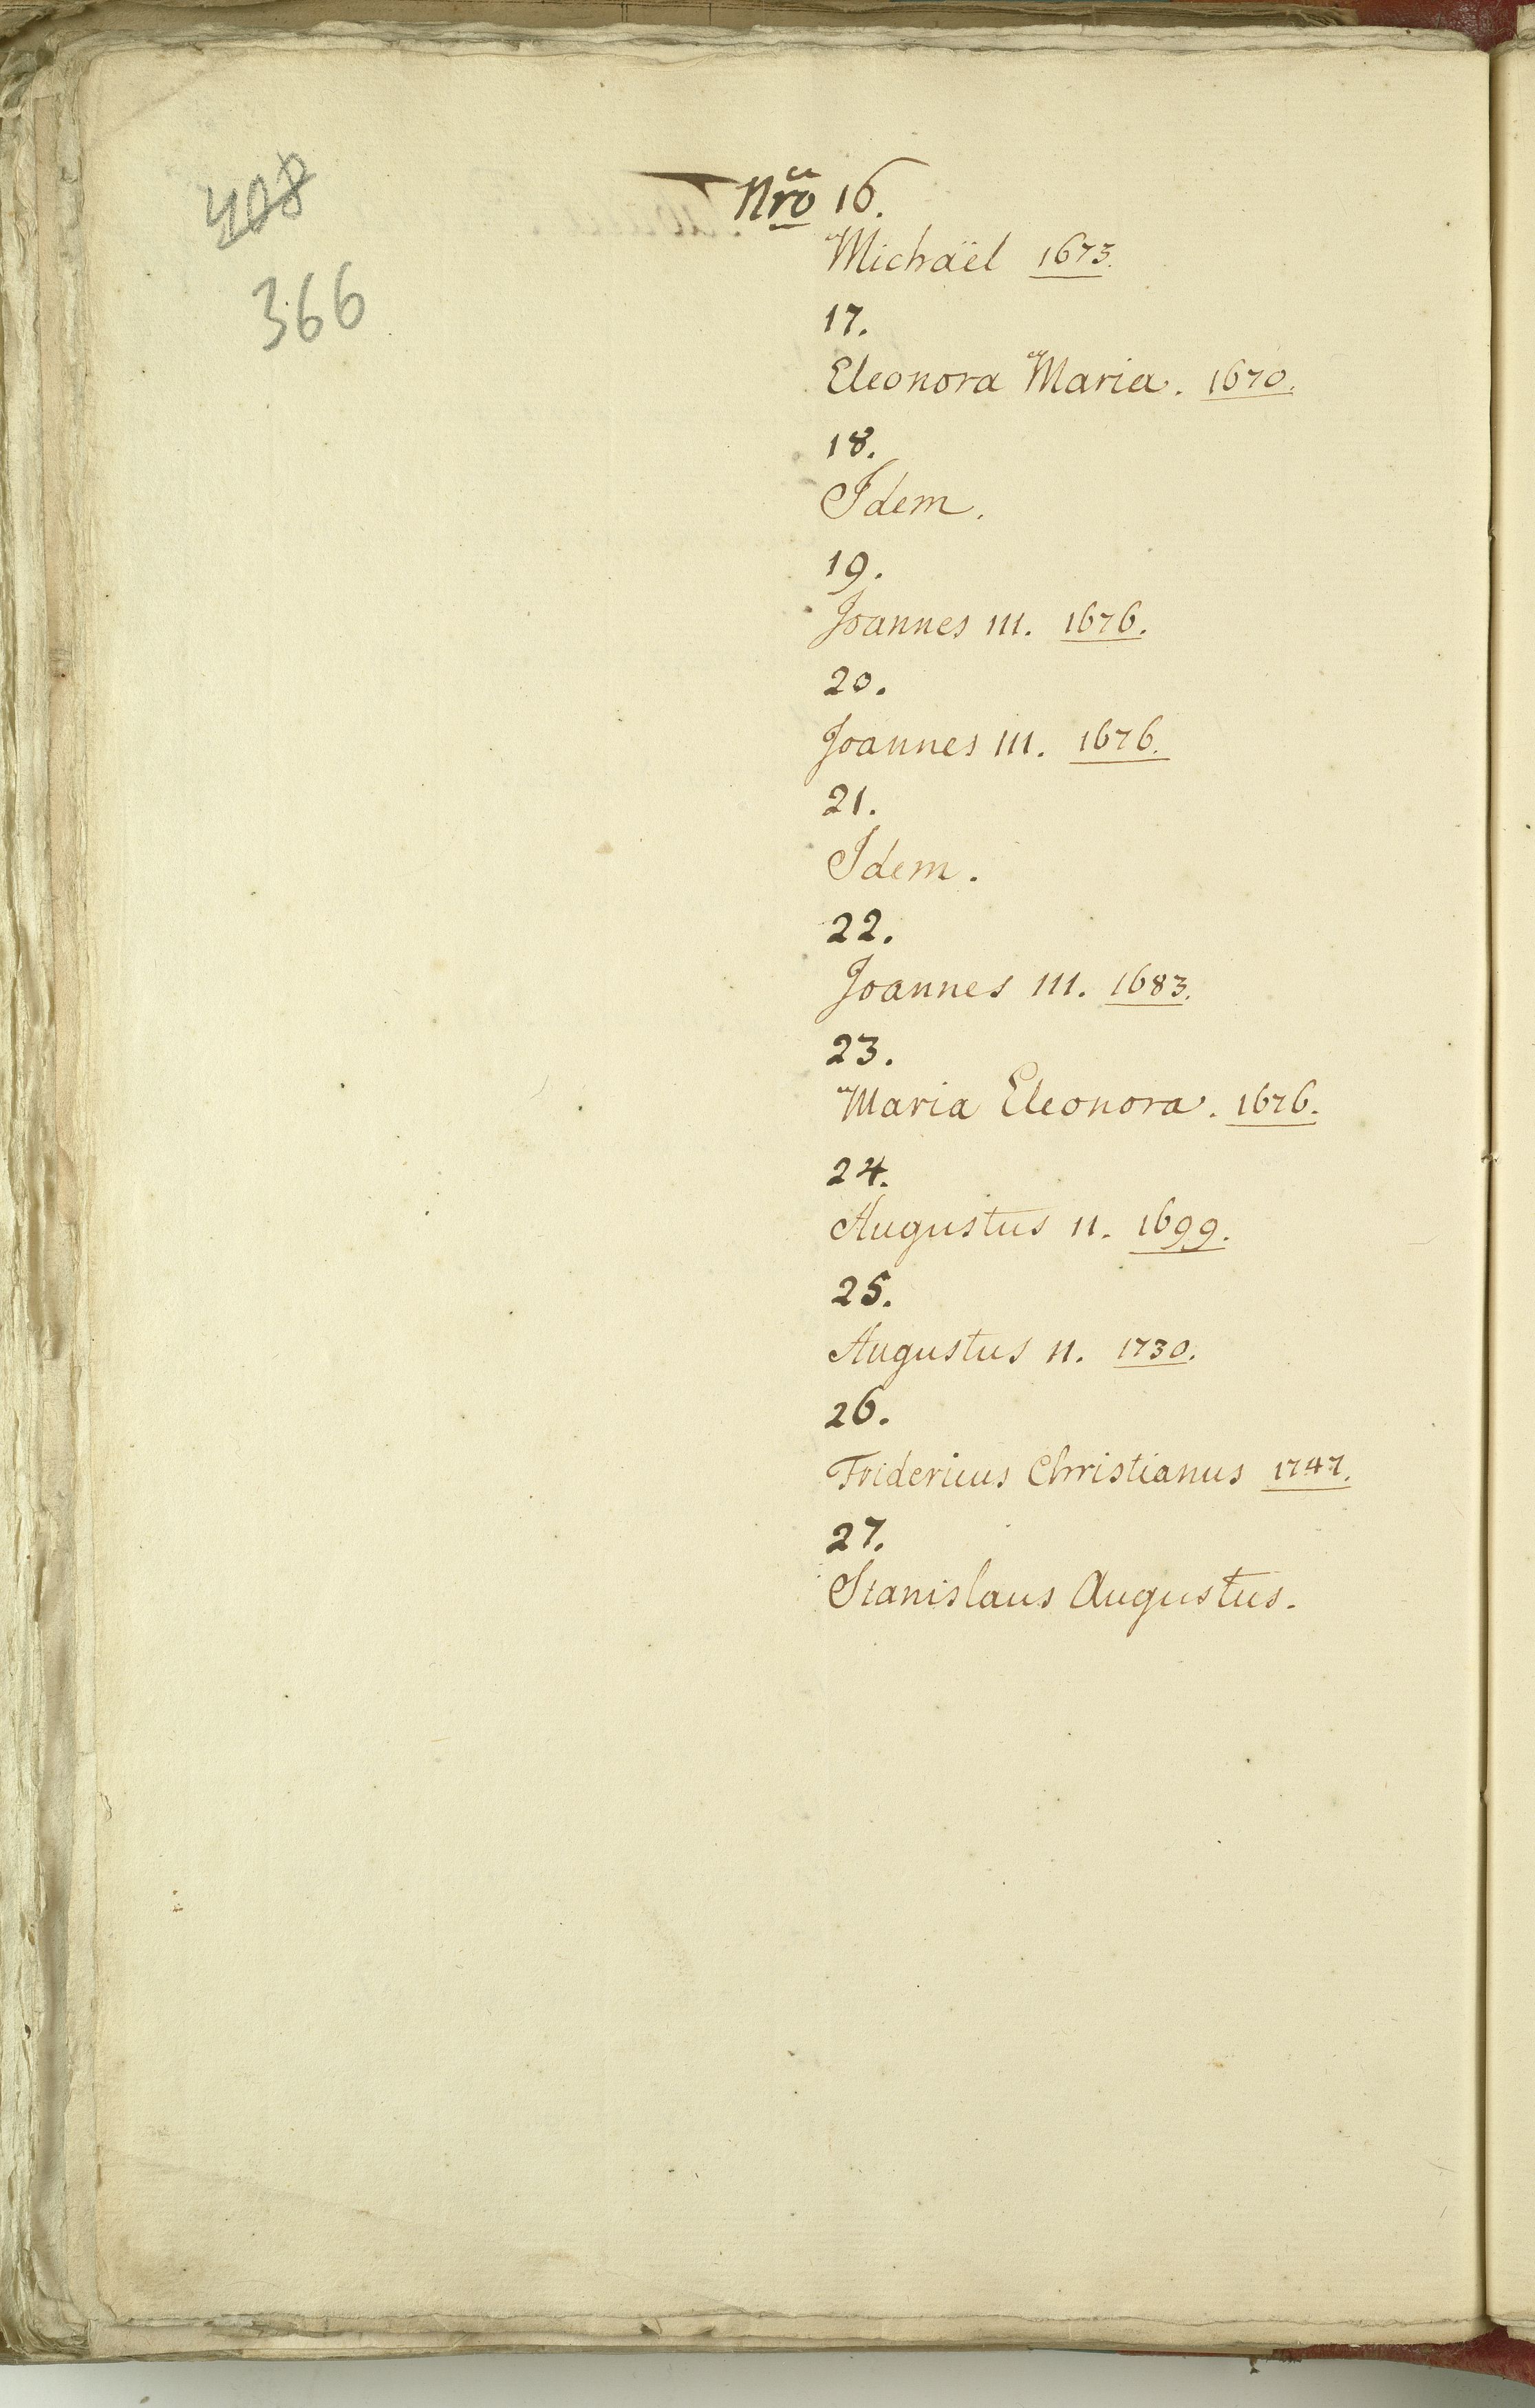 408
366
Nro 16.
Michaël 1673.
17.
Eleonora Maria. 1670.
18.
Idem.
19.
Joannes III. 1676.
20.
Joannes III. 1676.
21.
Idem.
22.
Joannes III. 1683.
23.
Maria Eleonora. 1676.
24.
Augustus II. 1699.
25.
Augustus II. 1730.
26.
Fridericus Christianus 1747.
27.
Stanislaus Augustus.